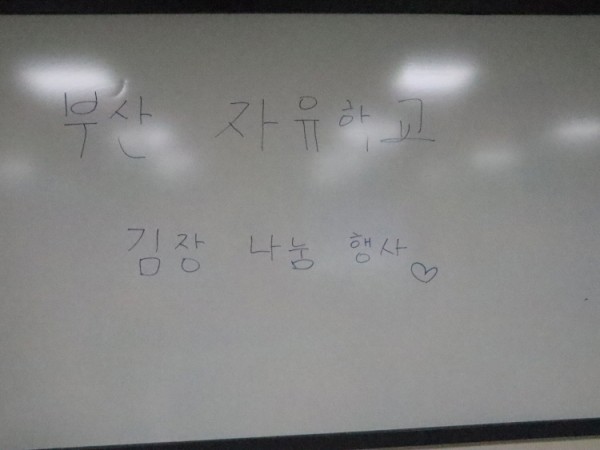 부산 자유학교
김장 나눔 행사♡